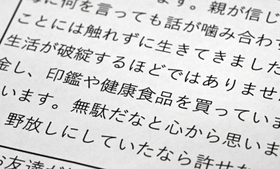 に何を言っても話が噛み合わ
す。親が信じ
ことには触れずに生きてきました
生活が破綻するほどではありませ
金し、印鑑や健康食品を買っていま
います。無駄だなと心から思いま
野放しにしていたなら許せな
お友達が